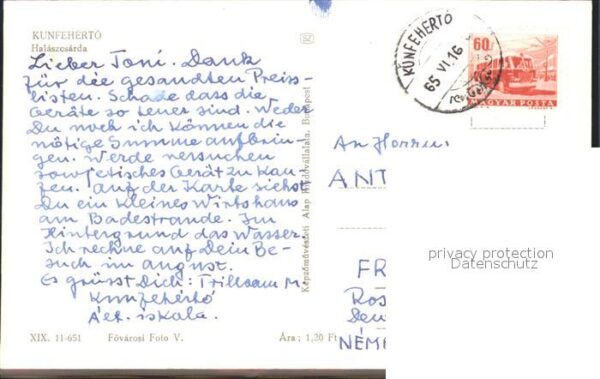 KUNFEHÉRTÓ
Halászcsárda
Lieber Toni. Dank
für die gesandten Preis-
listen. Schade dass die
Geräte so teuer sind. Weder
Du noch ich können die
nötige Summe aufbrin-
gen. Werde versuchen
sowjetisches Gerät zu kau-
fen. Auf der Karte siehst
Du ein kleines Wirtshaus
am Badestrande. Im
Hintergrund das Wasser.
Ich rechne auf Dein Be-
such im August.
Es grüsst Dich: M
Kunfehértó
Ált. iskola.
XIX. 11-651 Fővárosi Foto V. Ára: 1,20 Ft
Képzőművészeti Alap Kiadóvállalata, Budapest
KUNFEHÉRTÓ
65 VI. 16
60f
MAGYAR POSTA
An Herrn:
ANT
FR
Ros
NÉM
privacy protection
Datenschutz